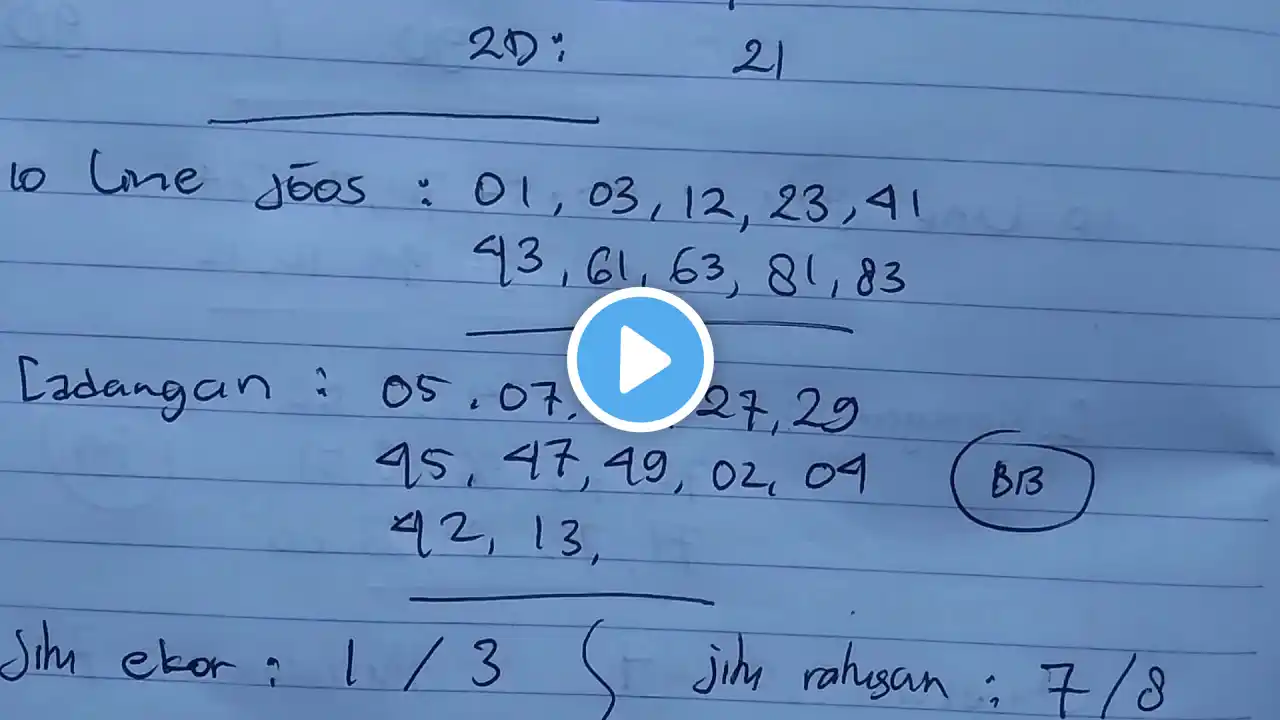 2D: 21
10 Line jōos : 01, 03, 12, 23, 41
43, 61, 63, 81, 83
Cadangan : 05, 07, 27, 29
45, 47, 49, 02, 04
BB
42, 13,
Jitu ekor : 1 / 3 jitu ratusan : 7/8